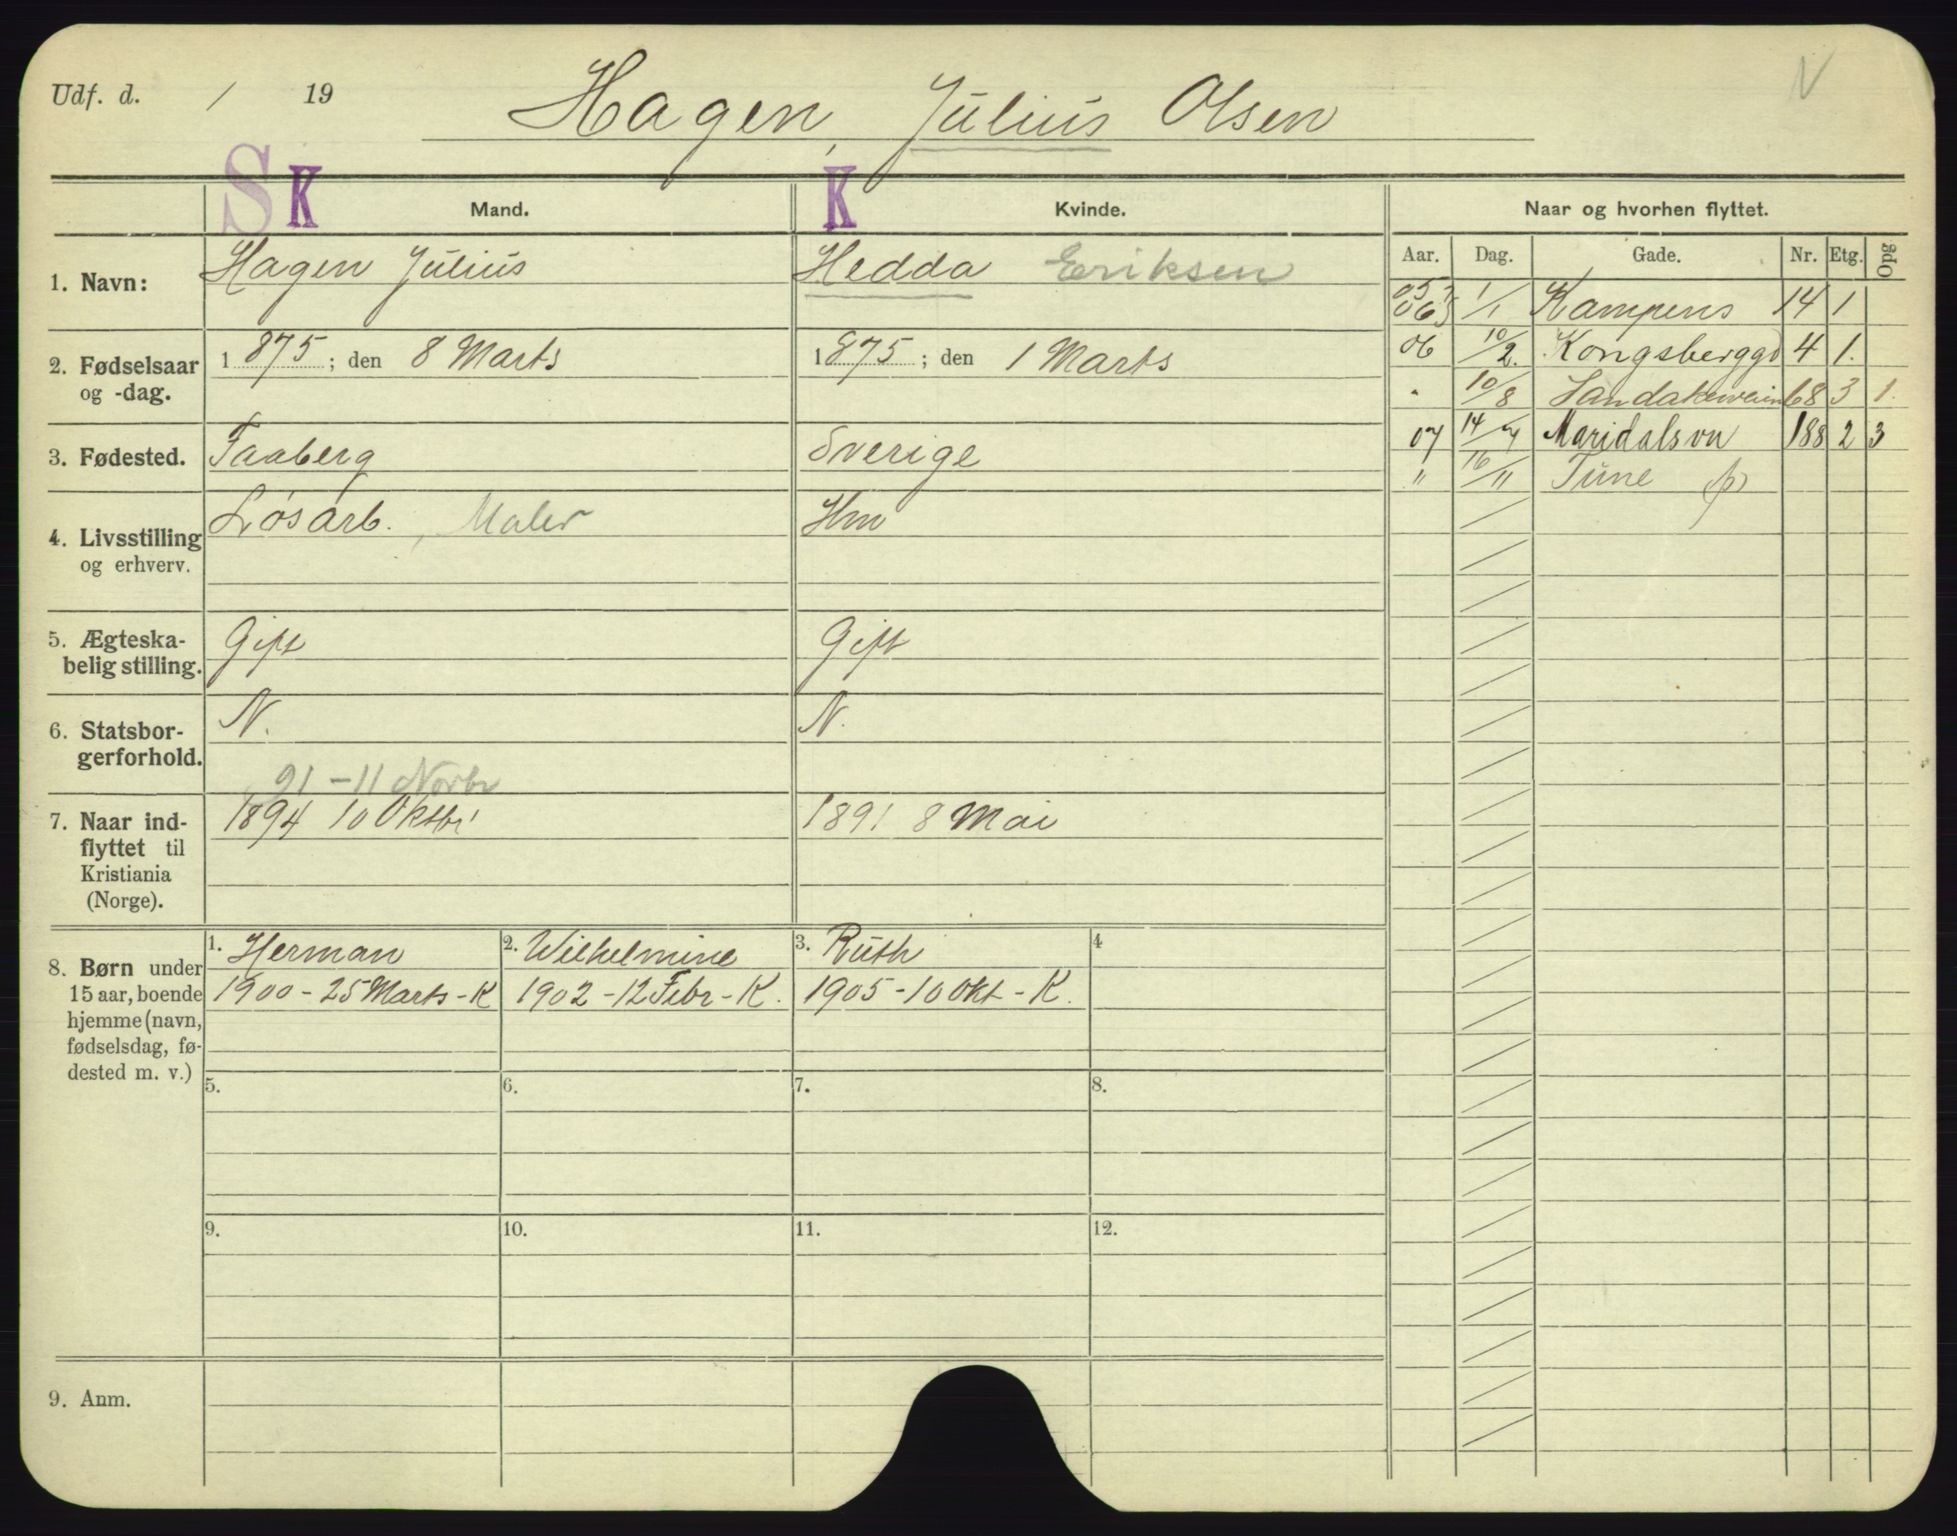 Udf. d. / 19
Hagen, Julius Olsen
N
S K Mand. K Kvinde. Naar og hvorhen flyttet.
Aar. Dag. Gade. Nr. Etg. Opg
1. Navn: Hagen Julius Hedda Eriksen
2. Fødselsaar og -dag. 1875; den 8 Marts 1875; den 1 Marts
3. Fødested. Faaberg Sverige
4. Livsstilling og erhverv. Løsarb., Maler Hm
5. Ægteska-
belig stilling. Gift Gift
6. Statsbor-
gerforhold. N. N.
91 - 11 Novbr
7. Naar ind-
flyttet til
Kristiania
(Norge). 1894 10 Oktbr 1891 8 Mai
05 06 1/1 Kampens 14 1
06 10/2. Kongsberggd 4 1.
" 10/8 Sandakerveien 68 3 1.
07 14/7 Maridalsvn 188 2 3
" 16/11 Tune (p)
8. Børn under
15 aar, boende
hjemme (navn,
fødselsdag, fø-
dested m. v.)
1. Herman
1900 - 25 Marts - K
2. Wilhelmine
1902 - 12 Febr - K.
3. Ruth
1905 - 10 Okt - K.
4
5. 6. 7. 8.
9. 10. 11. 12.
9. Anm.